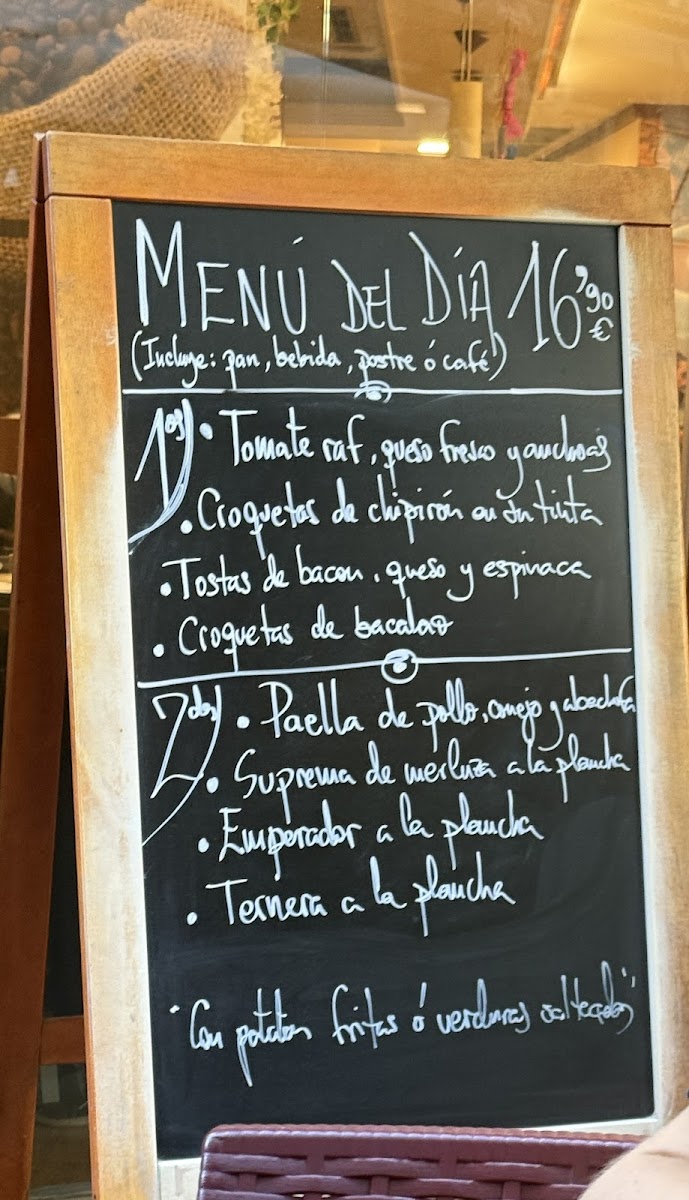 MENÚ DEL DÍA 16'90 €
(Incluye: pan, bebida, postre ó café)
1os) • Tomate raf, queso fresco y anchoas
• Croquetas de chipirón en su tinta
• Tostas de bacon, queso y espinaca
• Croquetas de bacalao
2dos) • Paella de pollo, conejo y alcachofa
• Suprema de merluza a la plancha
• Emperador a la plancha
• Ternera a la plancha
"Con patatas fritas ó verduras salteadas"